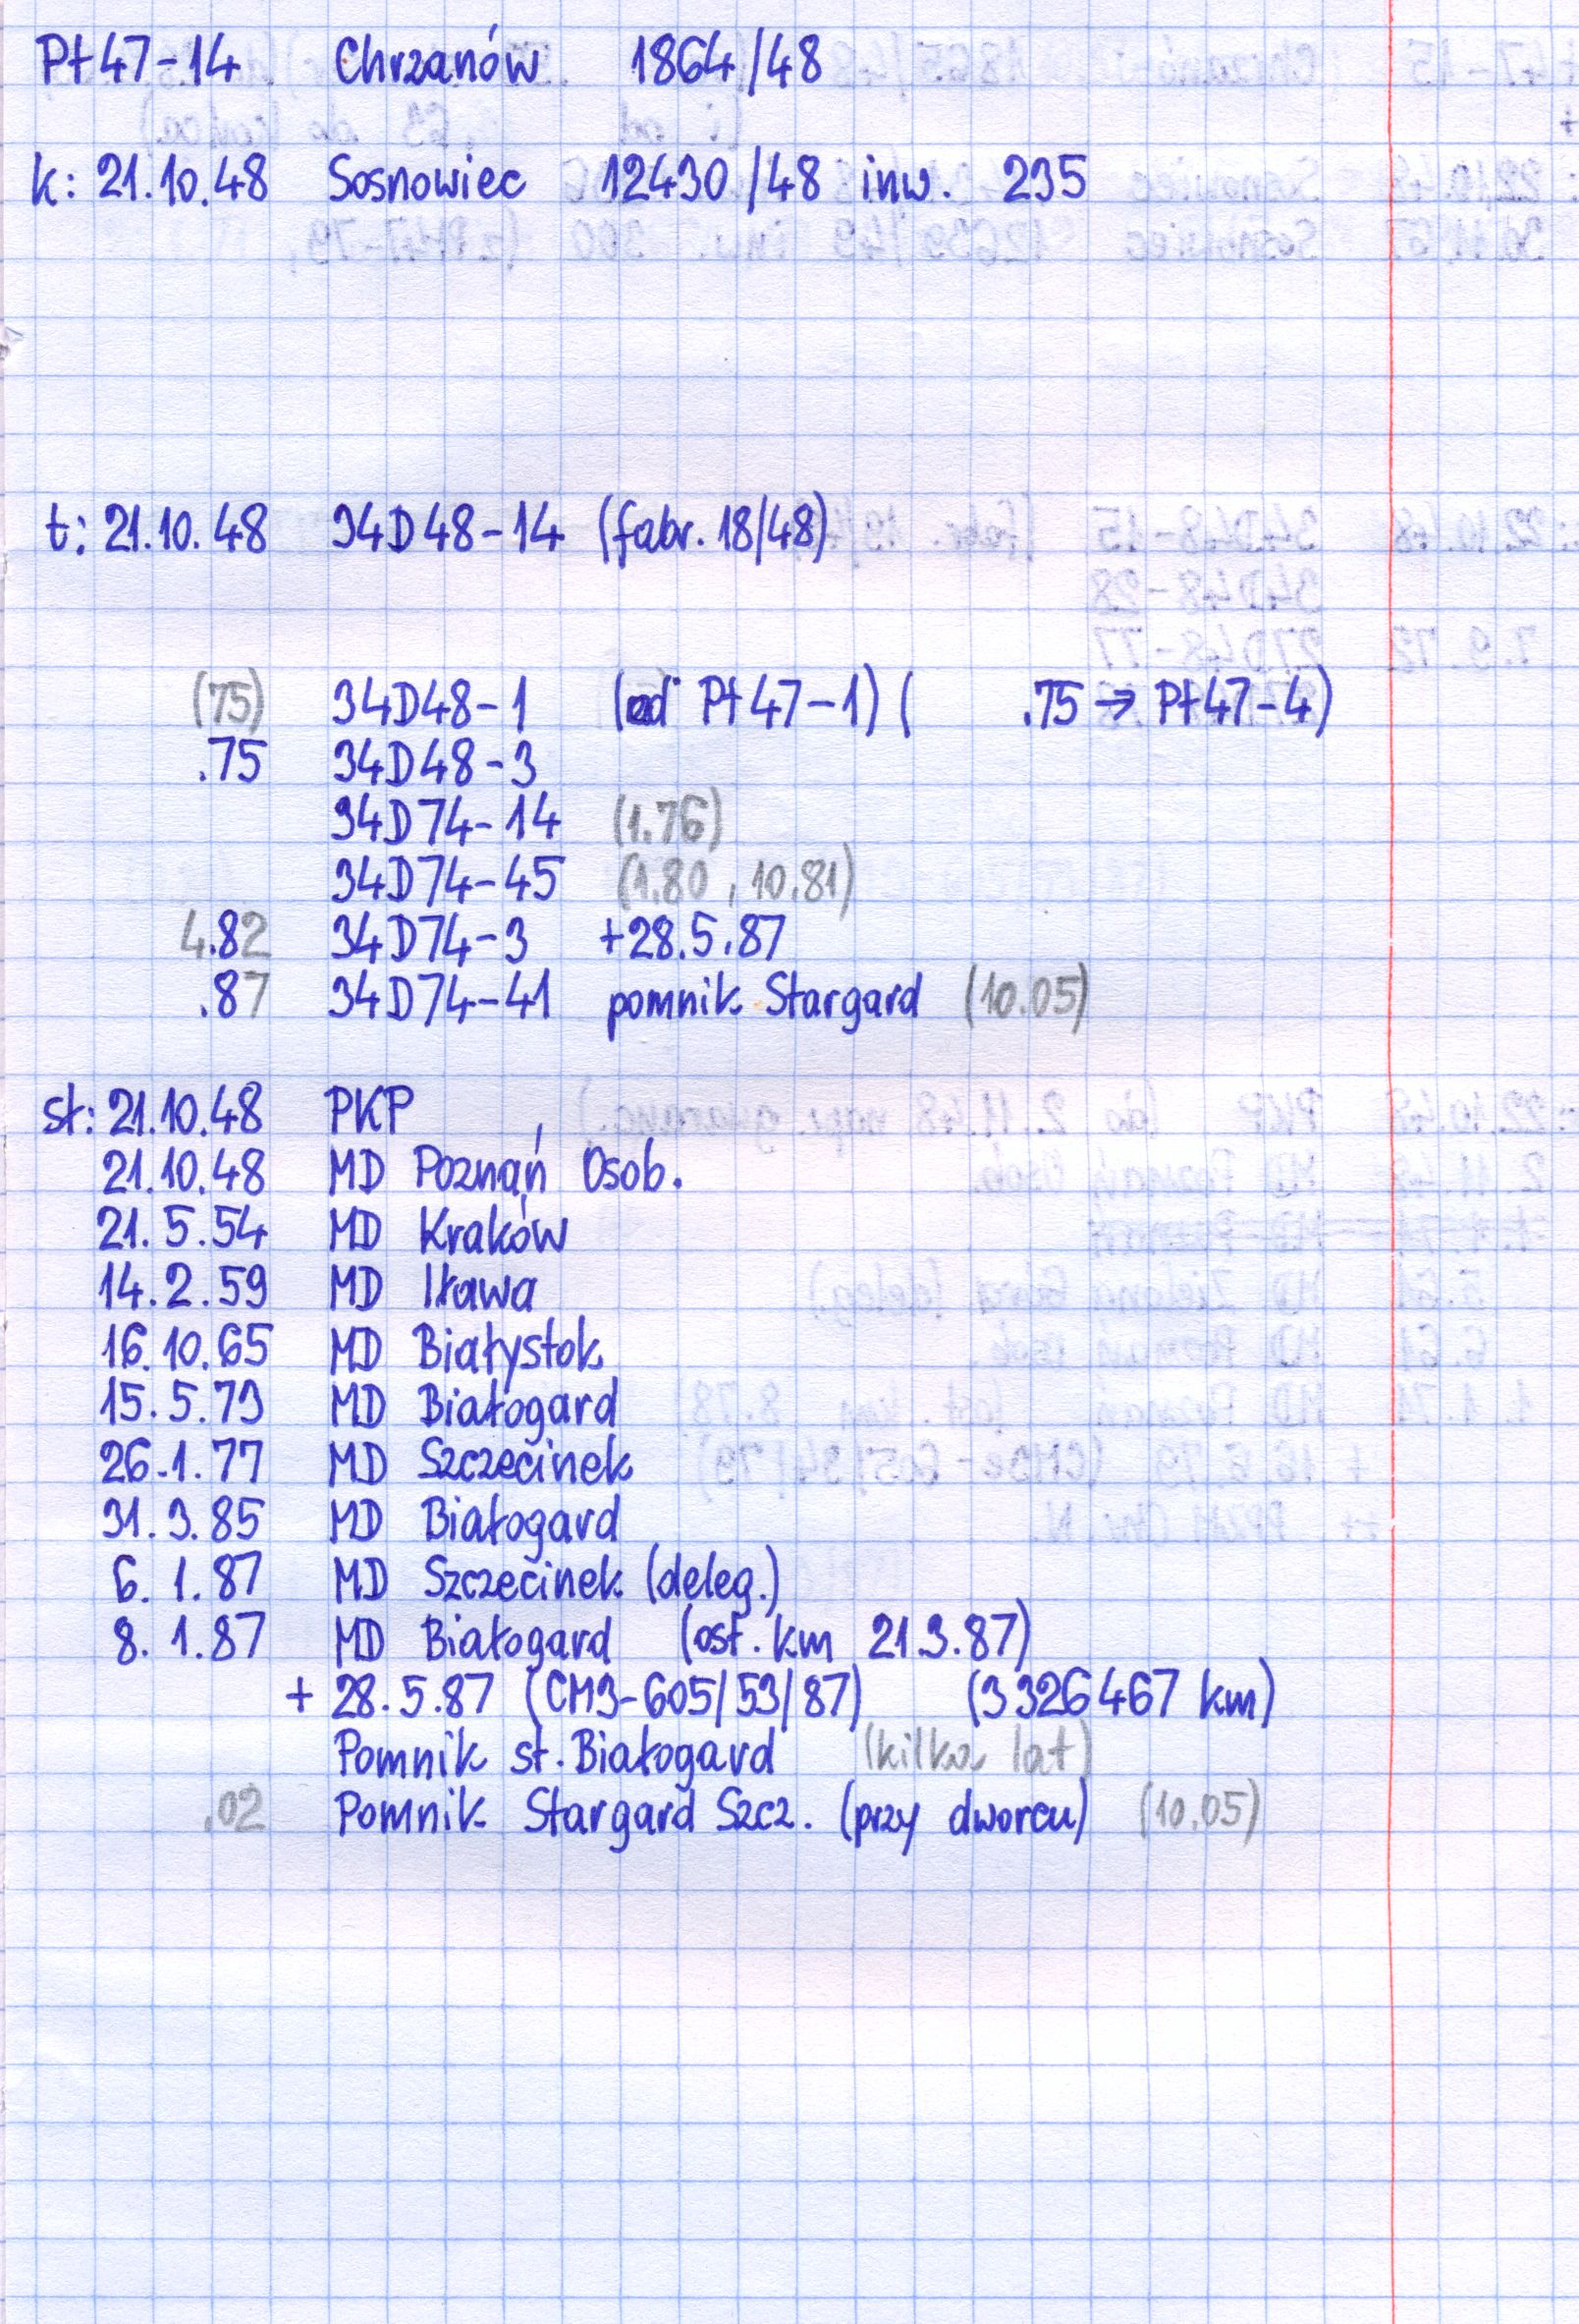 Pt47-14 Chrzanów 1864/48
k: 21.10.48 Sosnowiec 12430/48 inw. 235
t: 21.10.48 34D48-14 (fabr. 18/48)
(75) 34D48-1 (od Pt47-1) ( .75 → Pt47-4)
.75 34D48-3
34D74-14 (1.76)
34D74-45 (1.80, 10.81)
4.82 34D74-3 +28.5.87
.87 34D74-41 pomnik Stargard (10.05)
st: 21.10.48 PKP
21.10.48 MD Poznań Osob.
21.5.54 MD Kraków
14.2.59 MD Iława
16.10.65 MD Białystok
15.5.73 MD Białogard
26.1.77 MD Szczecinek
31.3.85 MD Białogard
6.1.87 MD Szczecinek (deleg.)
8.1.87 MD Białogard (ost. km 21.3.87)
+ 28.5.87 (CM3-605/53/87) (3326467 km)
Pomnik st. Białogard (kilka lat)
.02 Pomnik Stargard Szcz. (przy dworcu) (10.05)